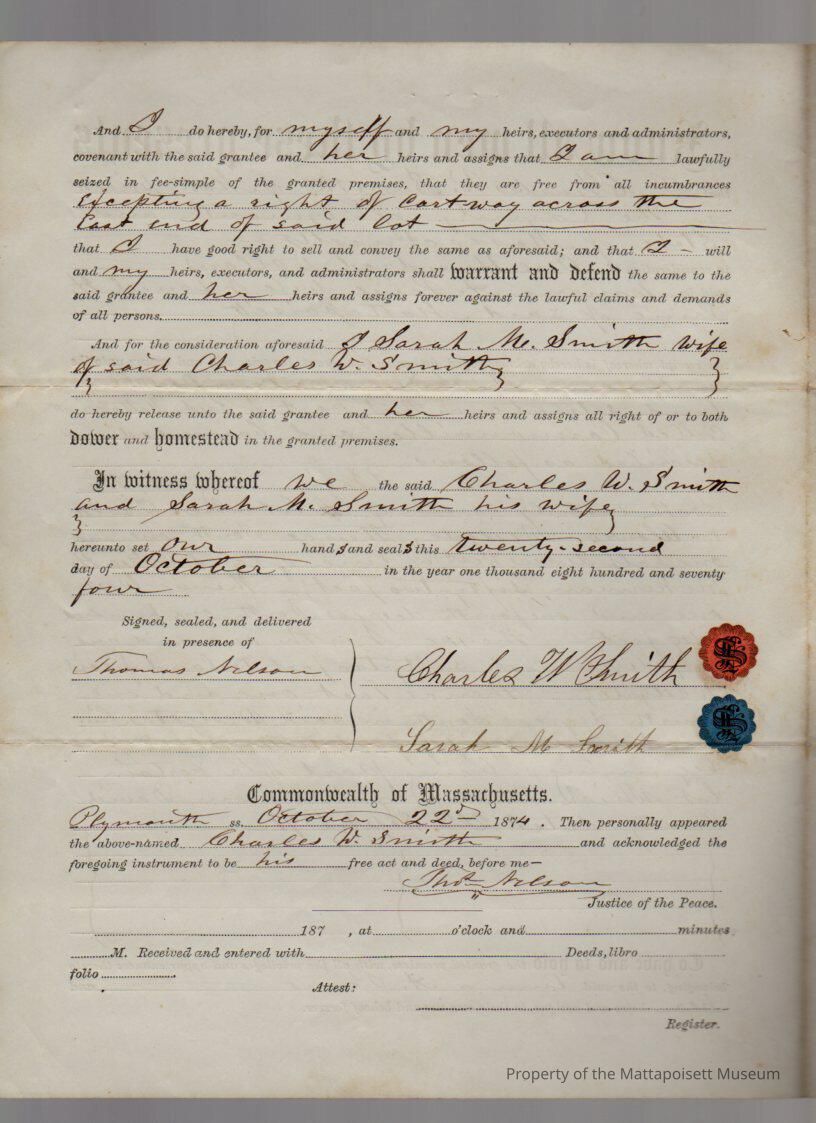 And I do hereby, for myself and my heirs, executors and administrators,
covenant with the said grantee and her heirs and assigns that I am lawfully
seized in fee-simple of the granted premises, that they are free from all incumbrances
Excepting a right of Cart way across the
East end of said lot
that I have good right to sell and convey the same as aforesaid; and that I - will
and my heirs, executors, and administrators shall warrant and defend the same to the
said grantee and her heirs and assigns forever against the lawful claims and demands
of all persons.
And for the consideration aforesaid I Sarah M. Smith wife
of said Charles W. Smith
do hereby release unto the said grantee and her heirs and assigns all right of or to both
dower and homestead in the granted premises.
In witness whereof we the said Charles W. Smith
and Sarah M. Smith his wife
hereunto set our hands and seals this twenty-second
day of October in the year one thousand eight hundred and seventy
four
Signed, sealed, and delivered
in presence of
Thomas Nelson
Charles W Smith
Sarah M Smith
Commonwealth of Massachusetts.
Plymouth ss. October 22d 1874. Then personally appeared
the above-named Charles W. Smith and acknowledged the
foregoing instrument to be his free act and deed, before me—
Thos. Nelson
Justice of the Peace.
187 , at o'clock and minutes
M. Received and entered with Deeds, libro
folio
Attest:
Register.
Property of the Mattapoisett Museum